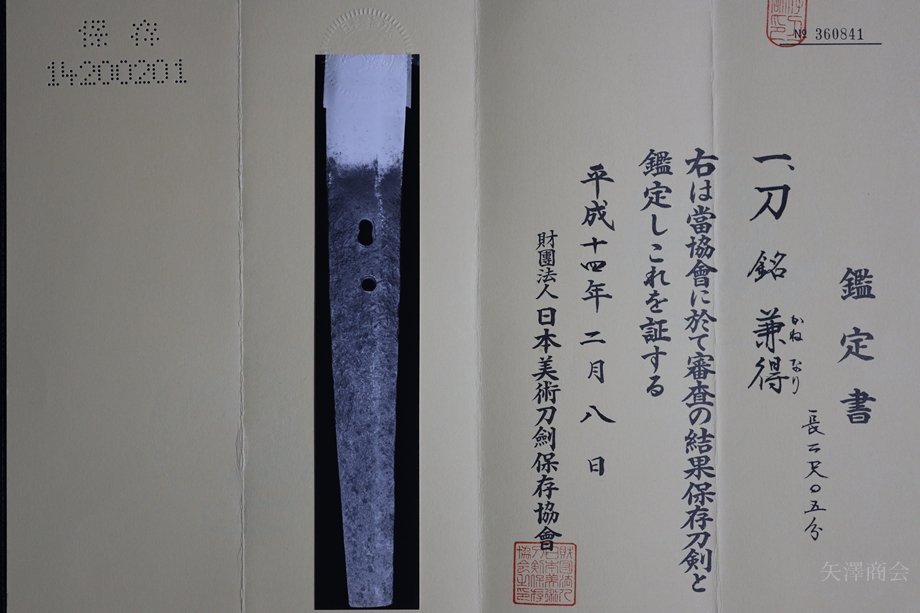 保存
14200201
№ 360841
鑑定書
一、刀 銘 兼得
かねなり
長二尺〇五分
右は當協會に於て審査の結果保存刀剣と
鑑定しこれを証する
平成十四年二月八日
財團法人日本美術刀劍保存協會
矢澤商会